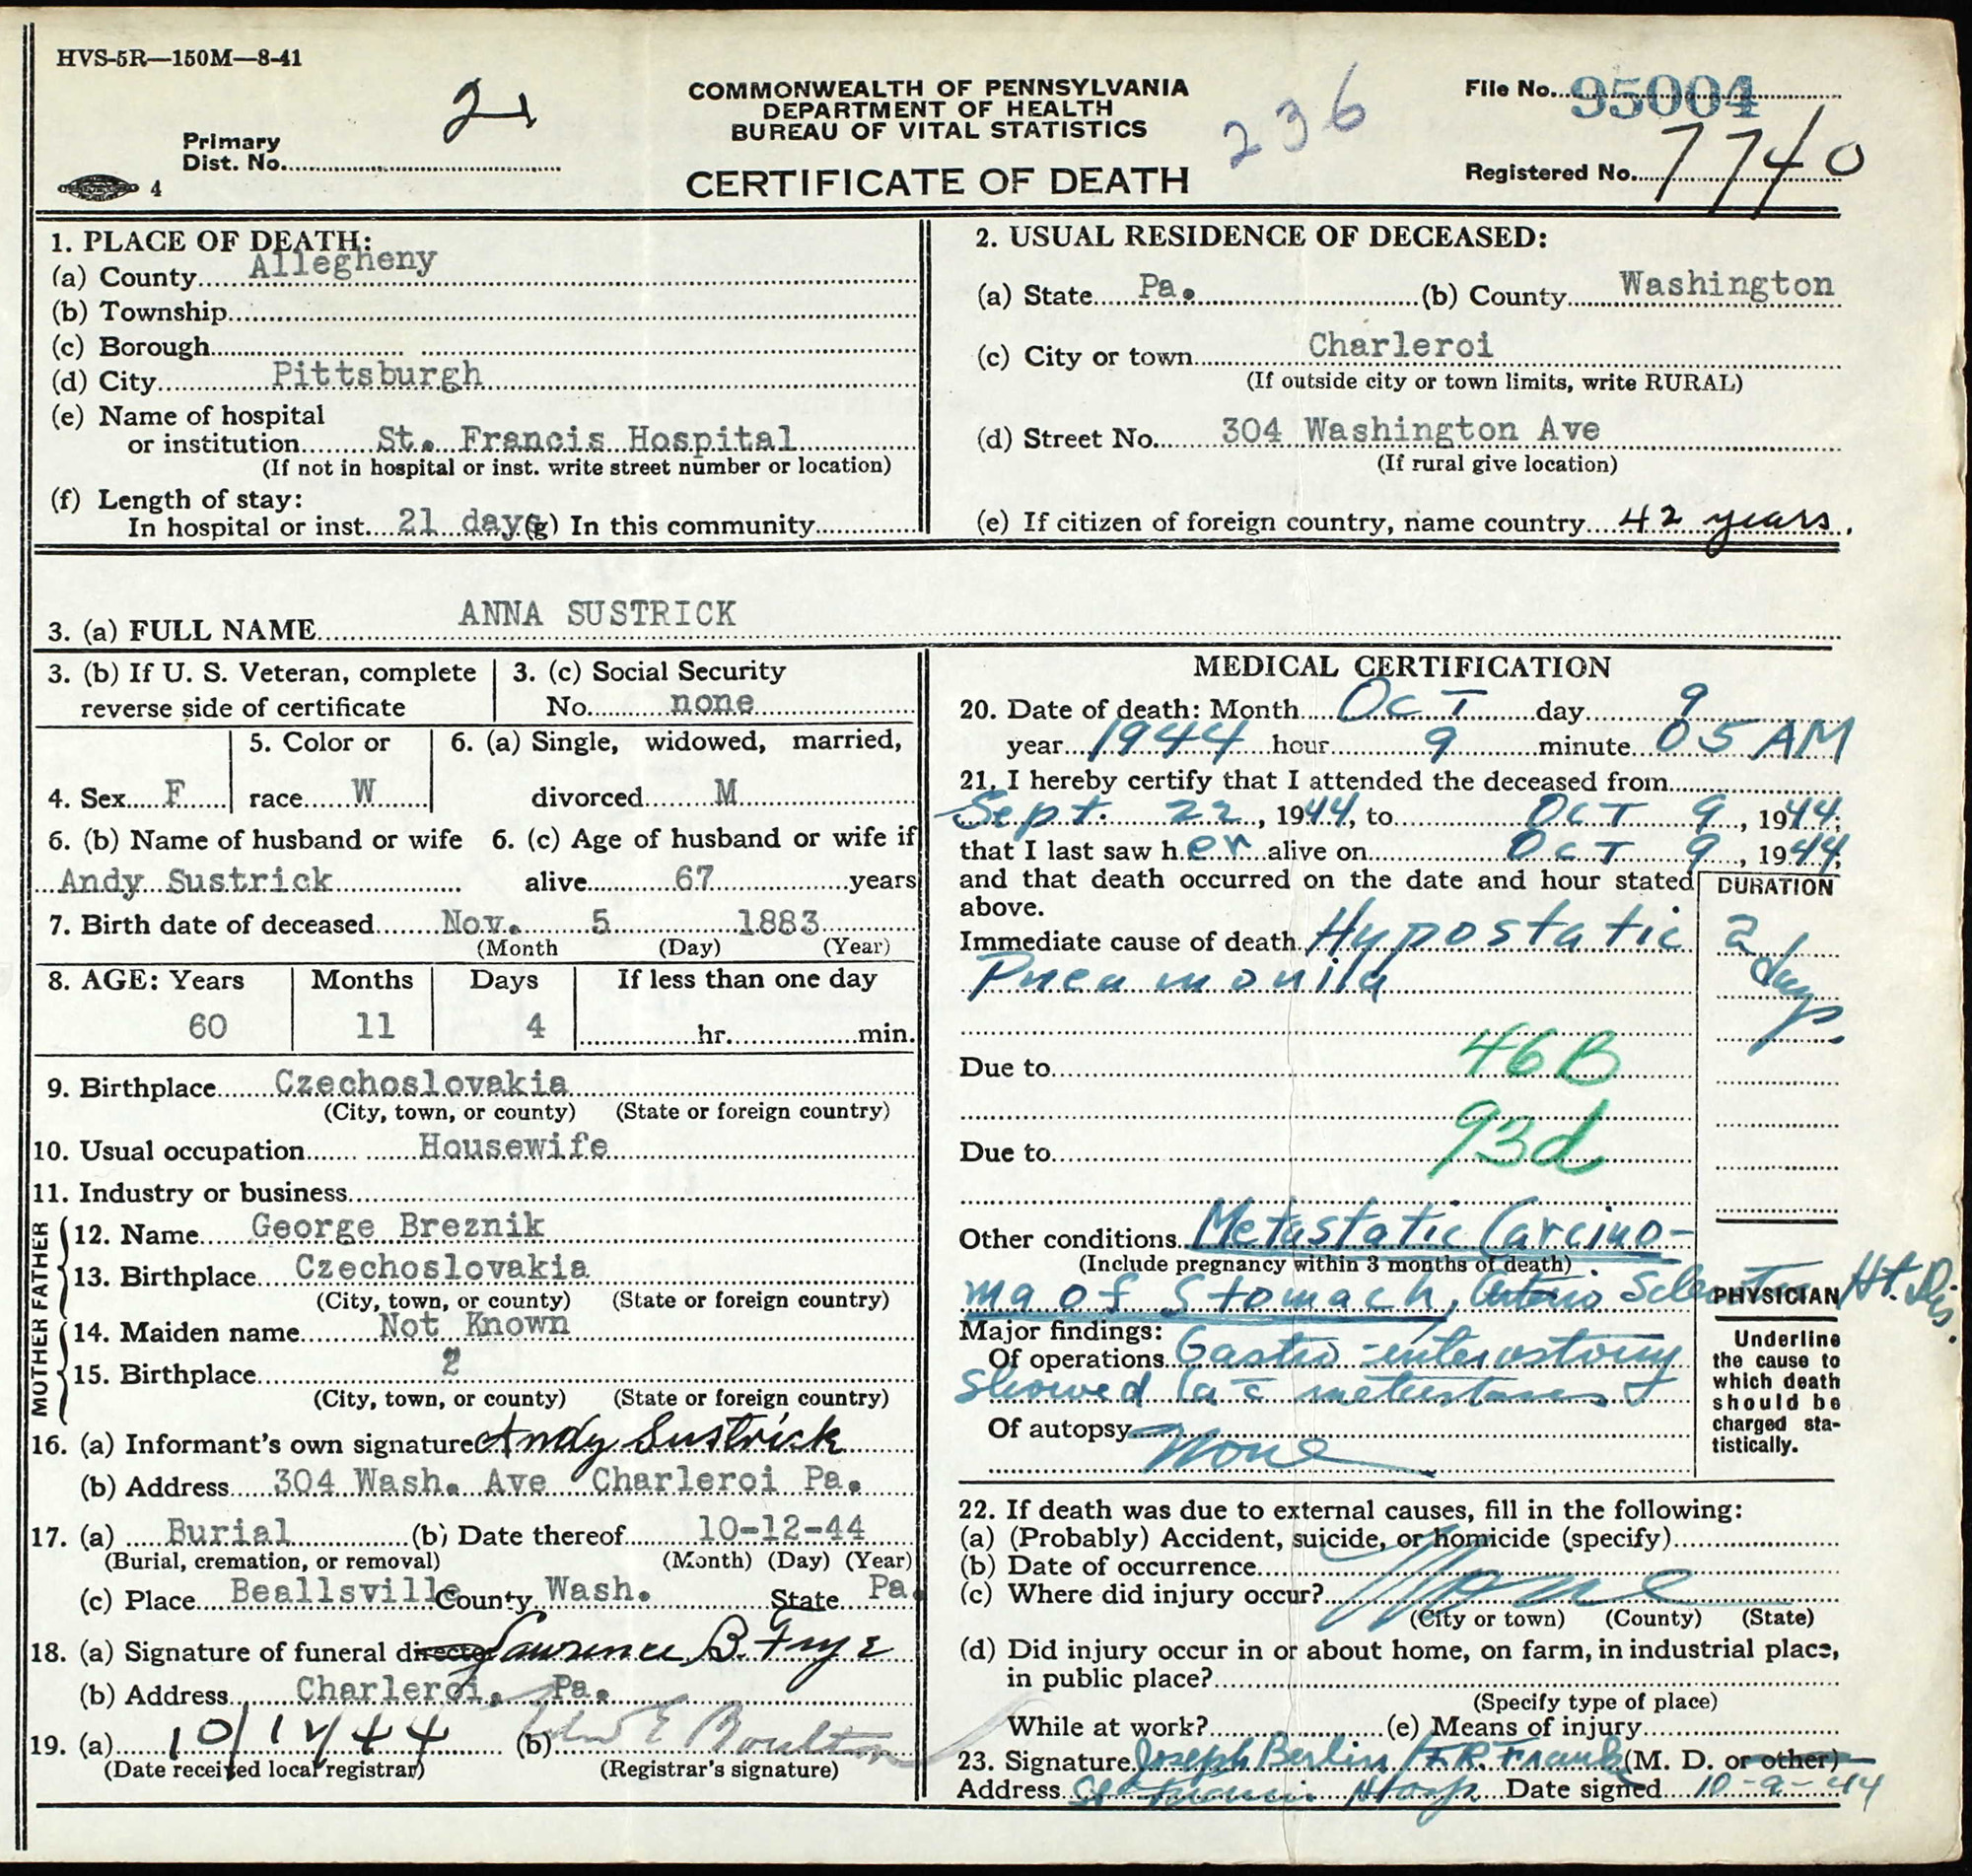 HVS-5R—150M—8-41
COMMONWEALTH OF PENNSYLVANIA
DEPARTMENT OF HEALTH
BUREAU OF VITAL STATISTICS
CERTIFICATE OF DEATH
Primary
Dist. No.
21
4
236
File No. 95004
Registered No. 7740
1. PLACE OF DEATH:
(a) County Allegheny
(b) Township
(c) Borough
(d) City Pittsburgh
(e) Name of hospital
or institution St. Francis Hospital
(If not in hospital or inst. write street number or location)
(f) Length of stay:
In hospital or inst. 21 days (g) In this community
2. USUAL RESIDENCE OF DECEASED:
(a) State Pa. (b) County Washington
(c) City or town Charleroi
(If outside city or town limits, write RURAL)
(d) Street No. 304 Washington Ave
(If rural give location)
(e) If citizen of foreign country, name country 42 years.
3. (a) FULL NAME ANNA SUSTRICK
3. (b) If U. S. Veteran, complete
reverse side of certificate
3. (c) Social Security
No. none
4. Sex F
5. Color or
race W
6. (a) Single, widowed, married,
divorced M
6. (b) Name of husband or wife
Andy Sustrick
6. (c) Age of husband or wife if
alive 67 years
7. Birth date of deceased Nov. 5 1883
(Month (Day) (Year)
8. AGE: Years Months Days If less than one day
60 11 4 hr. min.
9. Birthplace Czechoslovakia
(City, town, or county) (State or foreign country)
10. Usual occupation Housewife
11. Industry or business
FATHER
12. Name George Breznik
13. Birthplace Czechoslovakia
(City, town, or county) (State or foreign country)
MOTHER
14. Maiden name Not Known
15. Birthplace
(City, town, or county) (State or foreign country)
16. (a) Informant's own signature Andy Sustrick
(b) Address 304 Wash. Ave Charleroi Pa.
17. (a) Burial (b) Date thereof 10-12-44
(Burial, cremation, or removal) (Month) (Day) (Year)
(c) Place Beallsville County Wash. State Pa.
18. (a) Signature of funeral director Lawrence B. Frye
(b) Address Charleroi, Pa.
19. (a) 10/12/44 (b) E Boulton
(Date received local registrar) (Registrar's signature)
MEDICAL CERTIFICATION
20. Date of death: Month Oct day 9
year 1944 hour 9 minute 05 AM
21. I hereby certify that I attended the deceased from
Sept. 22, 1944, to Oct 9, 1944;
that I last saw her alive on Oct 9, 1944,
and that death occurred on the date and hour stated
above.
DURATION
Immediate cause of death Hypostatic
Pneumonia
2 days.
46B
Due to
93d
Due to
Other conditions Metastatic Carcino-
(Include pregnancy within 3 months of death)
ma of Stomach, Arterio Sclerotic Ht. Dis.
Major findings:
Of operations Gastro-enterostomy
showed Ca c̄ metastases
Of autopsy None
PHYSICIAN
Underline
the cause to
which death
should be
charged sta-
tistically.
22. If death was due to external causes, fill in the following:
(a) (Probably) Accident, suicide, or homicide (specify)
(b) Date of occurrence
(c) Where did injury occur? None
(City or town) (County) (State)
(d) Did injury occur in or about home, on farm, in industrial place,
in public place?
(Specify type of place)
While at work? (e) Means of injury
23. Signature Joseph Berlin / F.R. Frank (M. D. or other)
Address St Francis Hosp Date signed 10-9-44